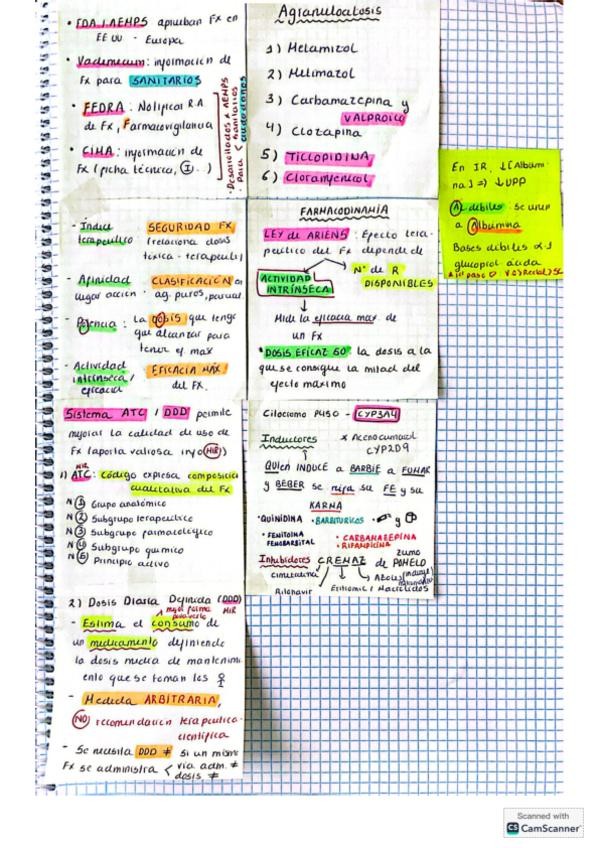 • FDA / AEMPS aprueban Fx en
EEUU - Europa
• Vademecum: información de
Fx para SANITARIOS
• FEDRA: Notificar R.A
de Fx, Farmacovigilancia
• CIMA: información de
Fx (ficha técnica, I)
• Desarrollados x AEMPS
• Para sanitarios
ciudadanos
Agranulocitosis
1) Metamizol
2) Metimazol
3) Carbamazepina y
VALPROICO
4) Clozapina
5) TICLOPIDINA
6) Cloramfenicol
En IR, ↓[Albúmi
na] => ↓UPP
ALdébiles: se unen
a Albúmina
Bases débiles α-1
glucoprot ácida
- Índice SEGURIDAD FX
terapéutico (relaciona dosis
tóxica - terapéuti)
- Afinidad CLASIFICACIÓN
lugar acción ag. puros, parcial
- Potencia: La dosis que tengo
que alcanzar para
tener el max
- Actividad EFICACIA MÁX
intrínseca/ del FX.
eficacia
FARMACODINAMIA
LEY de ARIENS: Efecto tera-
peútico del Fx depende de
ACTIVIDAD Nº de R
INTRÍNSECA DISPONIBLES
Mide la eficacia max de
un Fx
• DOSIS EFICAZ 50: la dosis a la
que se consigue la mitad del
efecto máximo
Sistema ATC / DDD permite
mejorar la calidad de uso de
Fx (aporta valiosa info HIR)
1) ATC: Código expresa composición
cualitativa del Fx
N① Grupo anatómico
N② Subgrupo terapeútico
N③ Subgrupo farmacológico
N④ Subgrupo químico
N⑤ Principio activo
Citocromo P450 - CYP3A4
Inductores x Acenocumarol
CYP2D9
QUIEN INDUCE a BARBIE a FUMAR
y BEBER se rifa su FE y su
KARMA
• QUINIDINA • BARBITÚRICOS y
• FENITOINA • CARBAMAZEPINA
FENOBARBITAL • RIFAMPICINA
Inhibidores CRENAZ zumo
de POMELO
Cimetidina Azoles
Ritonavir Eritromic / Macrólidos
2) Dosis Diaria Definida (DDD)
mejor forma HIR
- Estima el consumo de
un medicamento definiendo
la dosis media de mantenimi
ento que se toman los
- Medida ARBITRARIA,
NO recomendación terapeútica-
científica
- Se necesita DDD ≠ si un mismo
Fx se administra < vía adm. ≠
dosis ≠
Scanned with
CS CamScanner